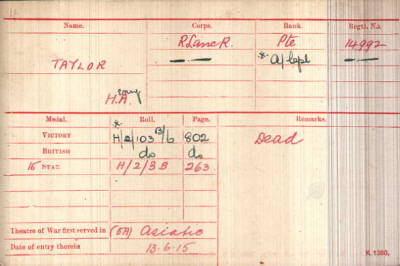 Name. Corps. Rank Regtl. No.
R Lanc R. Pte 14992
TAYLOR — — * A/Cpl — —
H.A.
Medal. Roll. Page. Remarks.
VICTORY * H/2/103 B/6 802 Dead
BRITISH do do
15 STAR H/2/3B 263
Theatre of War first served in (5A) Asiatic
Date of entry therein 13-6-15
K 1380.